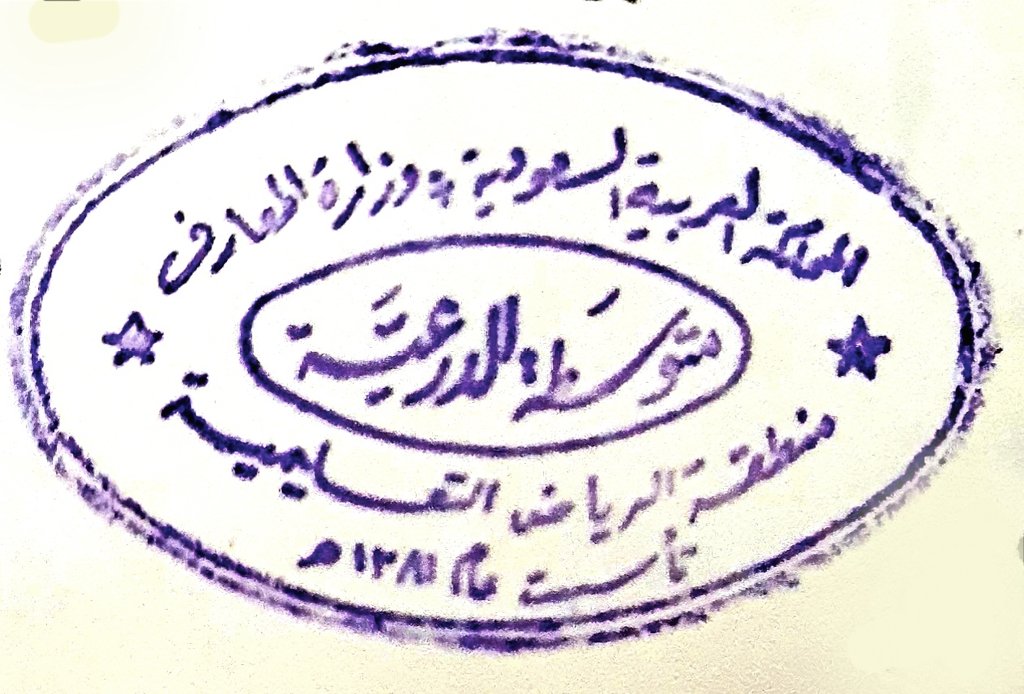 المملكة العربية السعودية * وزارة المعارف
متوسطة الدرعية
منطقة الرياض التعليمية
تأسست عام ١٣٨١ هـ